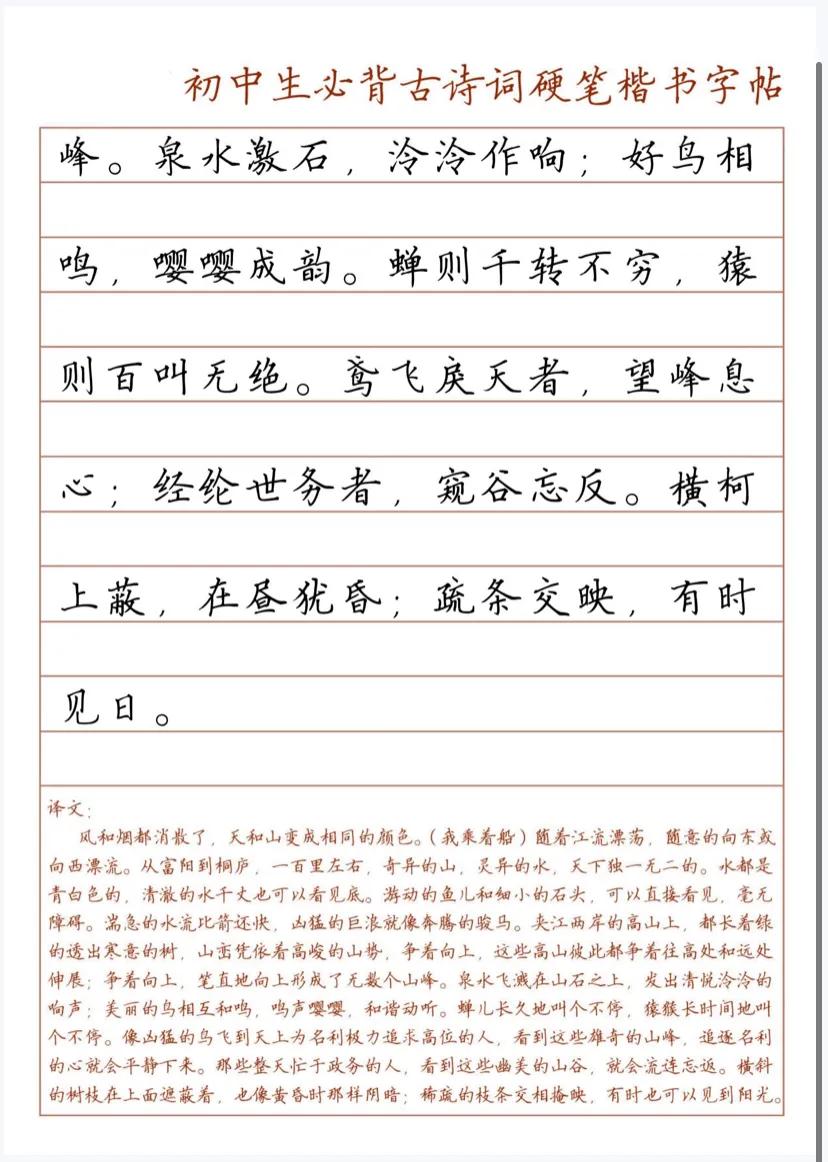 初中生必背古诗词硬笔楷书字帖
峰。泉水激石，泠泠作响；好鸟相
鸣，嘤嘤成韵。蝉则千转不穷，猿
则百叫无绝。鸢飞戾天者，望峰息
心；经纶世务者，窥谷忘反。横柯
上蔽，在昼犹昏；疏条交映，有时
见日。
译文：
风和烟都消散了，天和山变成相同的颜色。（我乘着船）随着江流漂荡，随意的向东或
向西漂流。从富阳到桐庐，一百里左右，奇异的山，灵异的水，天下独一无二的。水都是
青白色的，清澈的水千丈也可以看见底。游动的鱼儿和细小的石头，可以直接看见，毫无
障碍。湍急的水流比箭还快，凶猛的巨浪就像奔腾的骏马。夹江两岸的高山上，都长着绿
的透出寒意的树，山峦凭依着高峻的山势，争着向上，这些高山彼此都争着往高处和远处
伸展；争着向上，笔直地向上形成了无数个山峰。泉水飞溅在山石之上，发出清悦泠泠的
响声；美丽的鸟相互和鸣，鸣声嘤嘤，和谐动听。蝉儿长久地叫个不停，猿猴长时间地叫
个不停。像凶猛的鸟飞到天上为名利极力追求高位的人，看到这些雄奇的山峰，追逐名利
的心就会平静下来。那些整天忙于政务的人，看到这些幽美的山谷，就会流连忘返。横斜
的树枝在上面遮蔽着，也像黄昏时那样阴暗；稀疏的枝条交相掩映，有时也可以见到阳光。